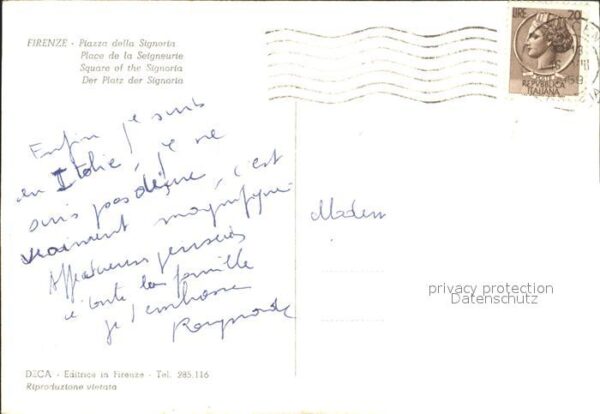 FIRENZE - Piazza della Signoria
Place de la Seigneurie
Square of the Signoria
Der Platz der Signoria
LIRE 20
REPUBBLICA
ITALIANA
Enfin je suis
en Italie, je ne
suis pas déçue, c'est
vraiment magnifique
Affectueuses pensées
à toute la famille
je t'embrasse
Raymonde
Madem
privacy protection
Datenschutz
DECA - Editrice in Firenze - Tel. 285.116
Riproduzione vietata